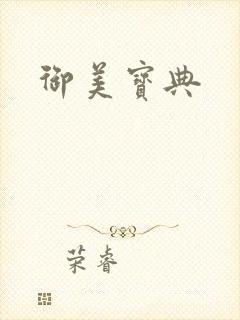 御美寶典
荣睿